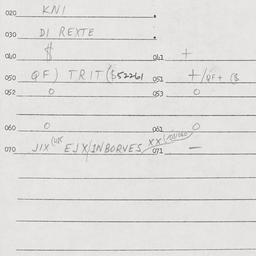 020 KNI
030 DI REXTE
040 $ 041 +
050 QF) TRIT($52261 051 +/QF+ ($
052 0 053 0
060 0 061 0
070 JIX EJX/INBORVES 071 —